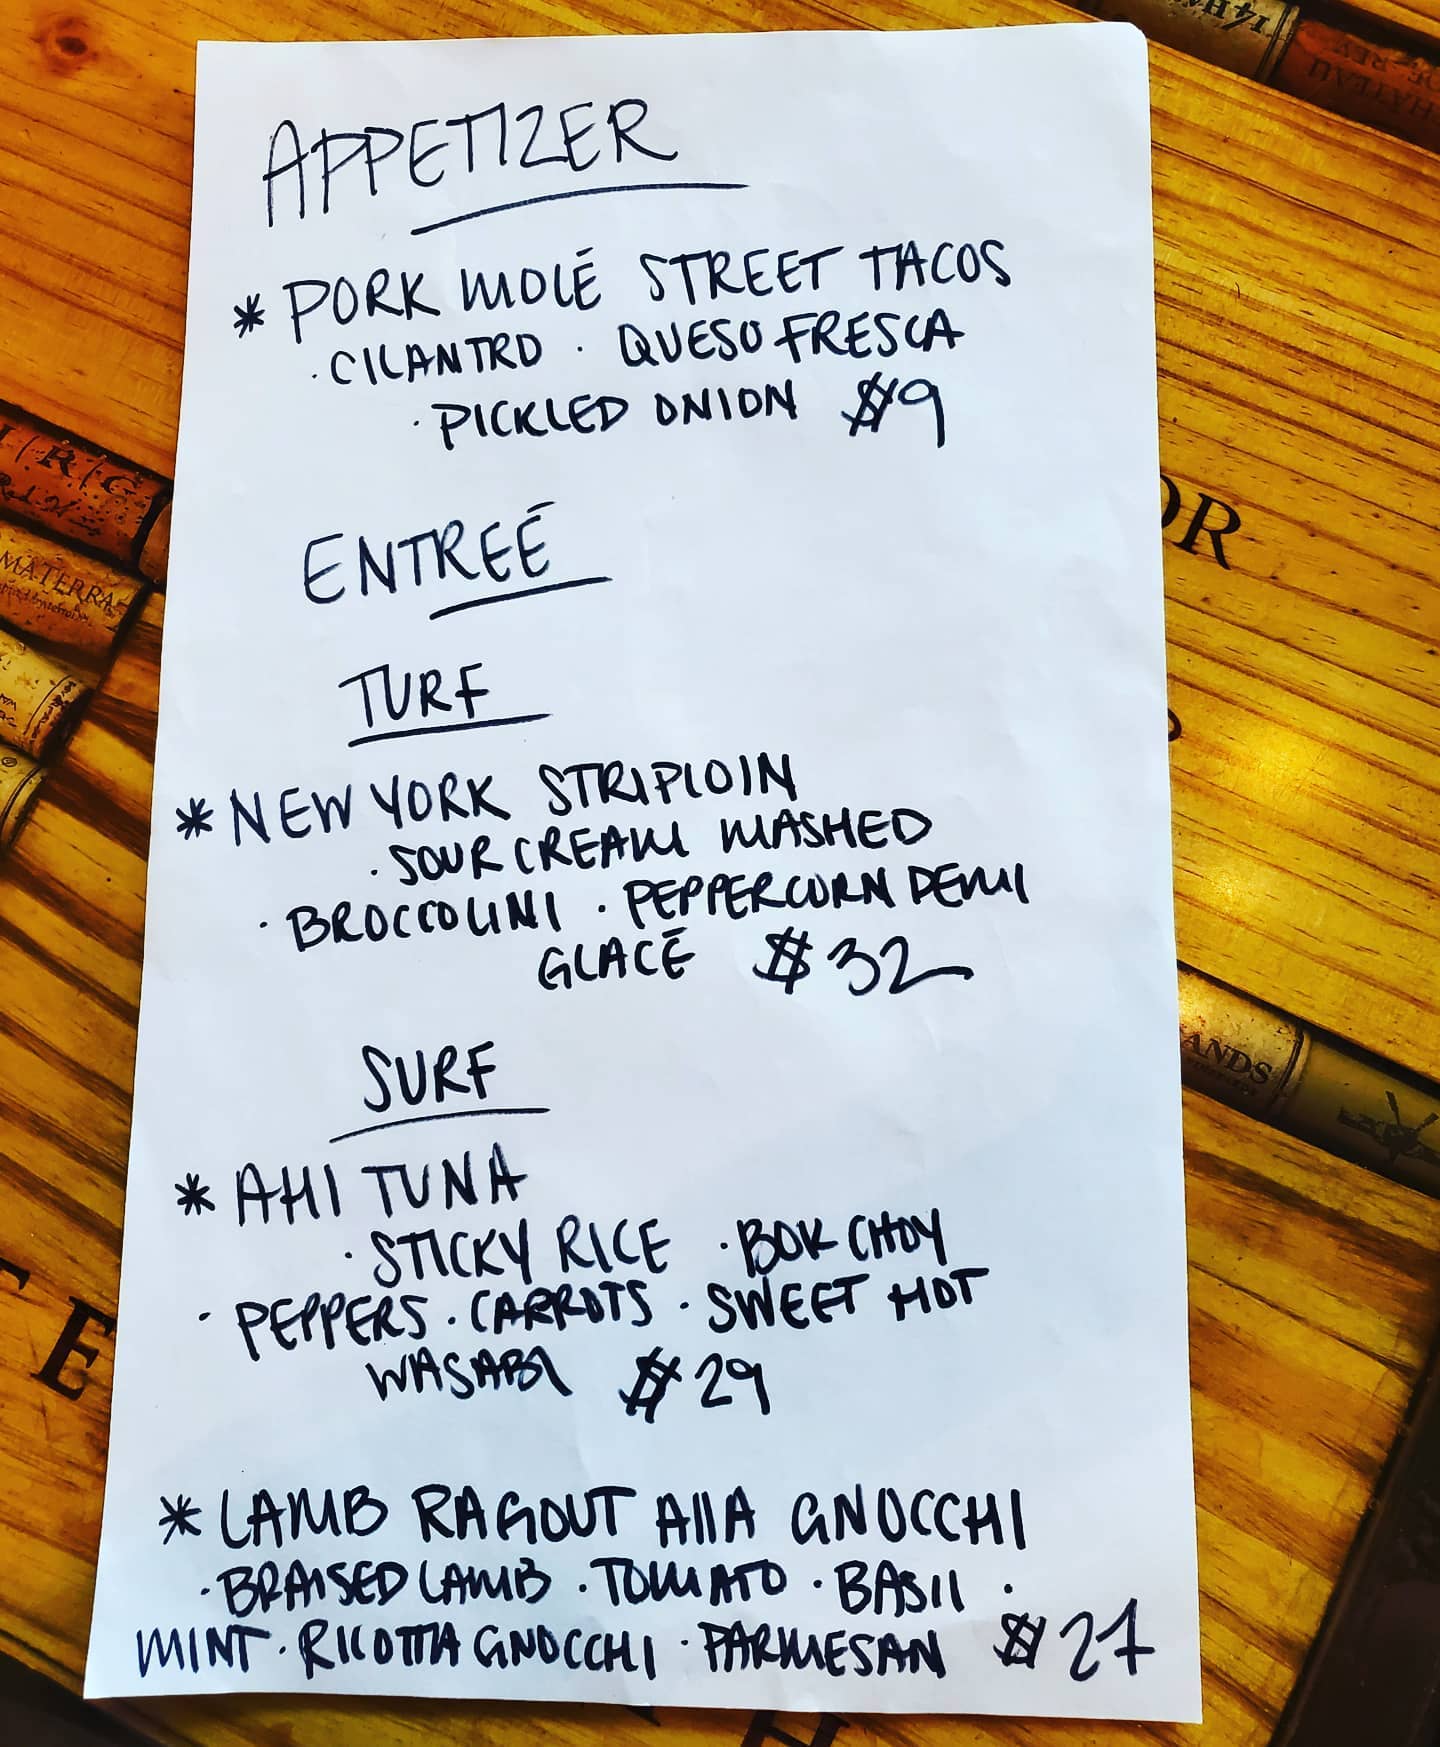 APPETIZER
* PORK MOLÉ STREET TACOS
· CILANTRO · QUESO FRESCA
· PICKLED ONION $9
ENTREÉ
TURF
* NEW YORK STRIPLOIN
· SOUR CREAM MASHED
· BROCCOLINI · PEPPERCORN DEMI
GLACÉ $32
SURF
* AHI TUNA
· STICKY RICE · BOK CHOY
· PEPPERS · CARROTS · SWEET HOT
WASABI $29
* LAMB RAGOUT AllA GNOCCHI
· BRAISED LAMB · TOMATO · BASIl ·
MINT · RICOTTA GNOCCHI · PARMESAN $27
MATERRA
OR
ANDS
TE
H